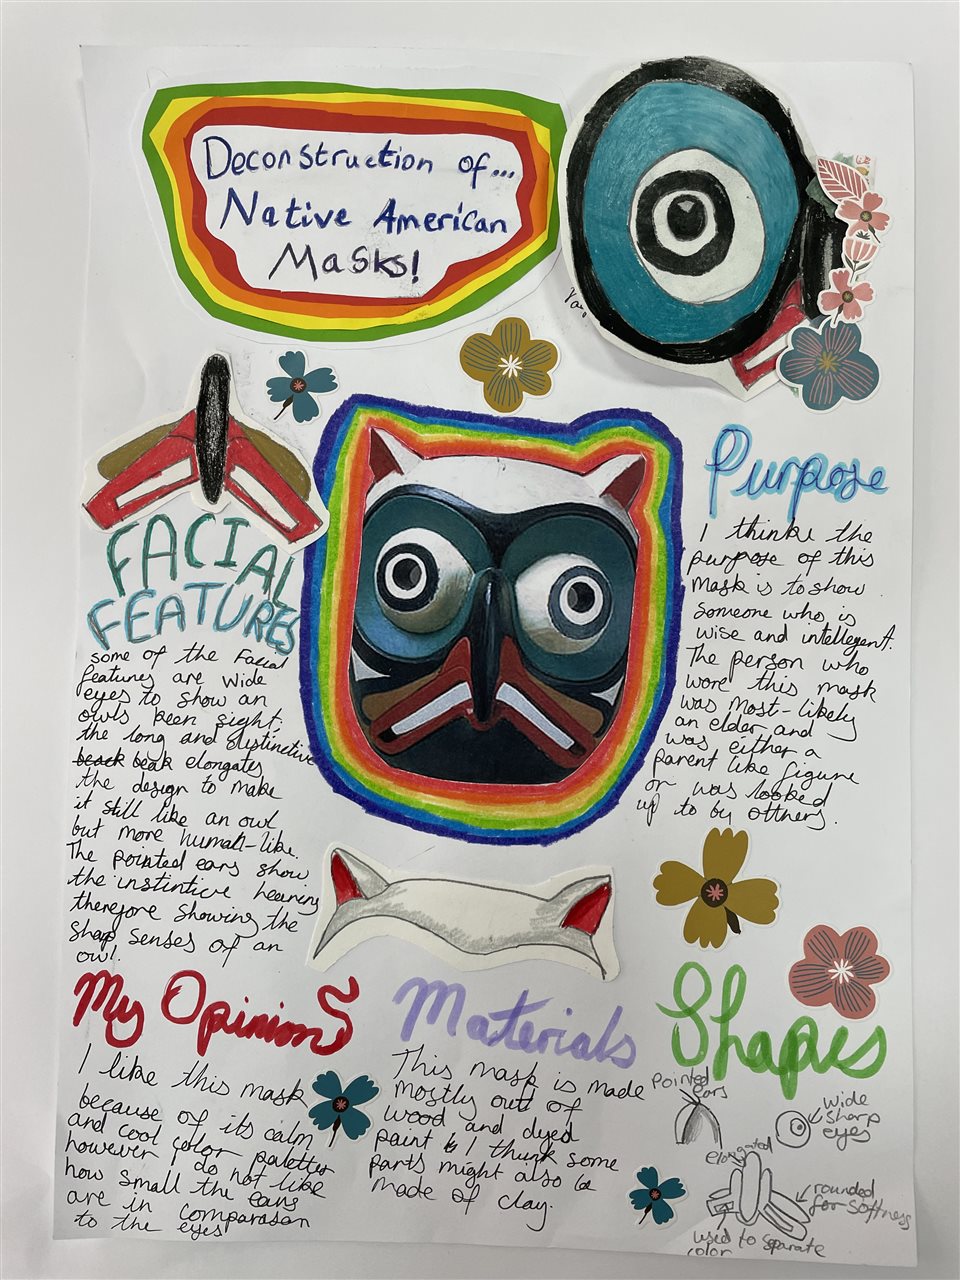 Deconstruction of...
Native American
Masks!
FACIAL
FEATURES
some of the Facial
features are wide
eyes to show an
owls keen sight.
the long and distinctive
beak elongates
the design to make
it still like an owl
but more human-like.
The pointed ears show
the instintive hearing
therefore showing the
sharp senses of an
owl.
Purpose
I thinke the
purpose of this
mask is to show
someone who is
wise and intellegent.
The person who
wore this mask
was most-likely
an elder and
was either a
parent like figure
or was looked
up to by others.
My Opinions
I like this mask
because of its calm
and cool color palette
however I do not like
how small the ears
are in comparasan
to the eyes
Materials
This mask is made
mostly out of
wood and dyed
paint & I think some
parts might also be
made of clay.
Shapes
Pointed
ears
wide
sharp
eyes
elongated
rounded
for softness
used to separate
color